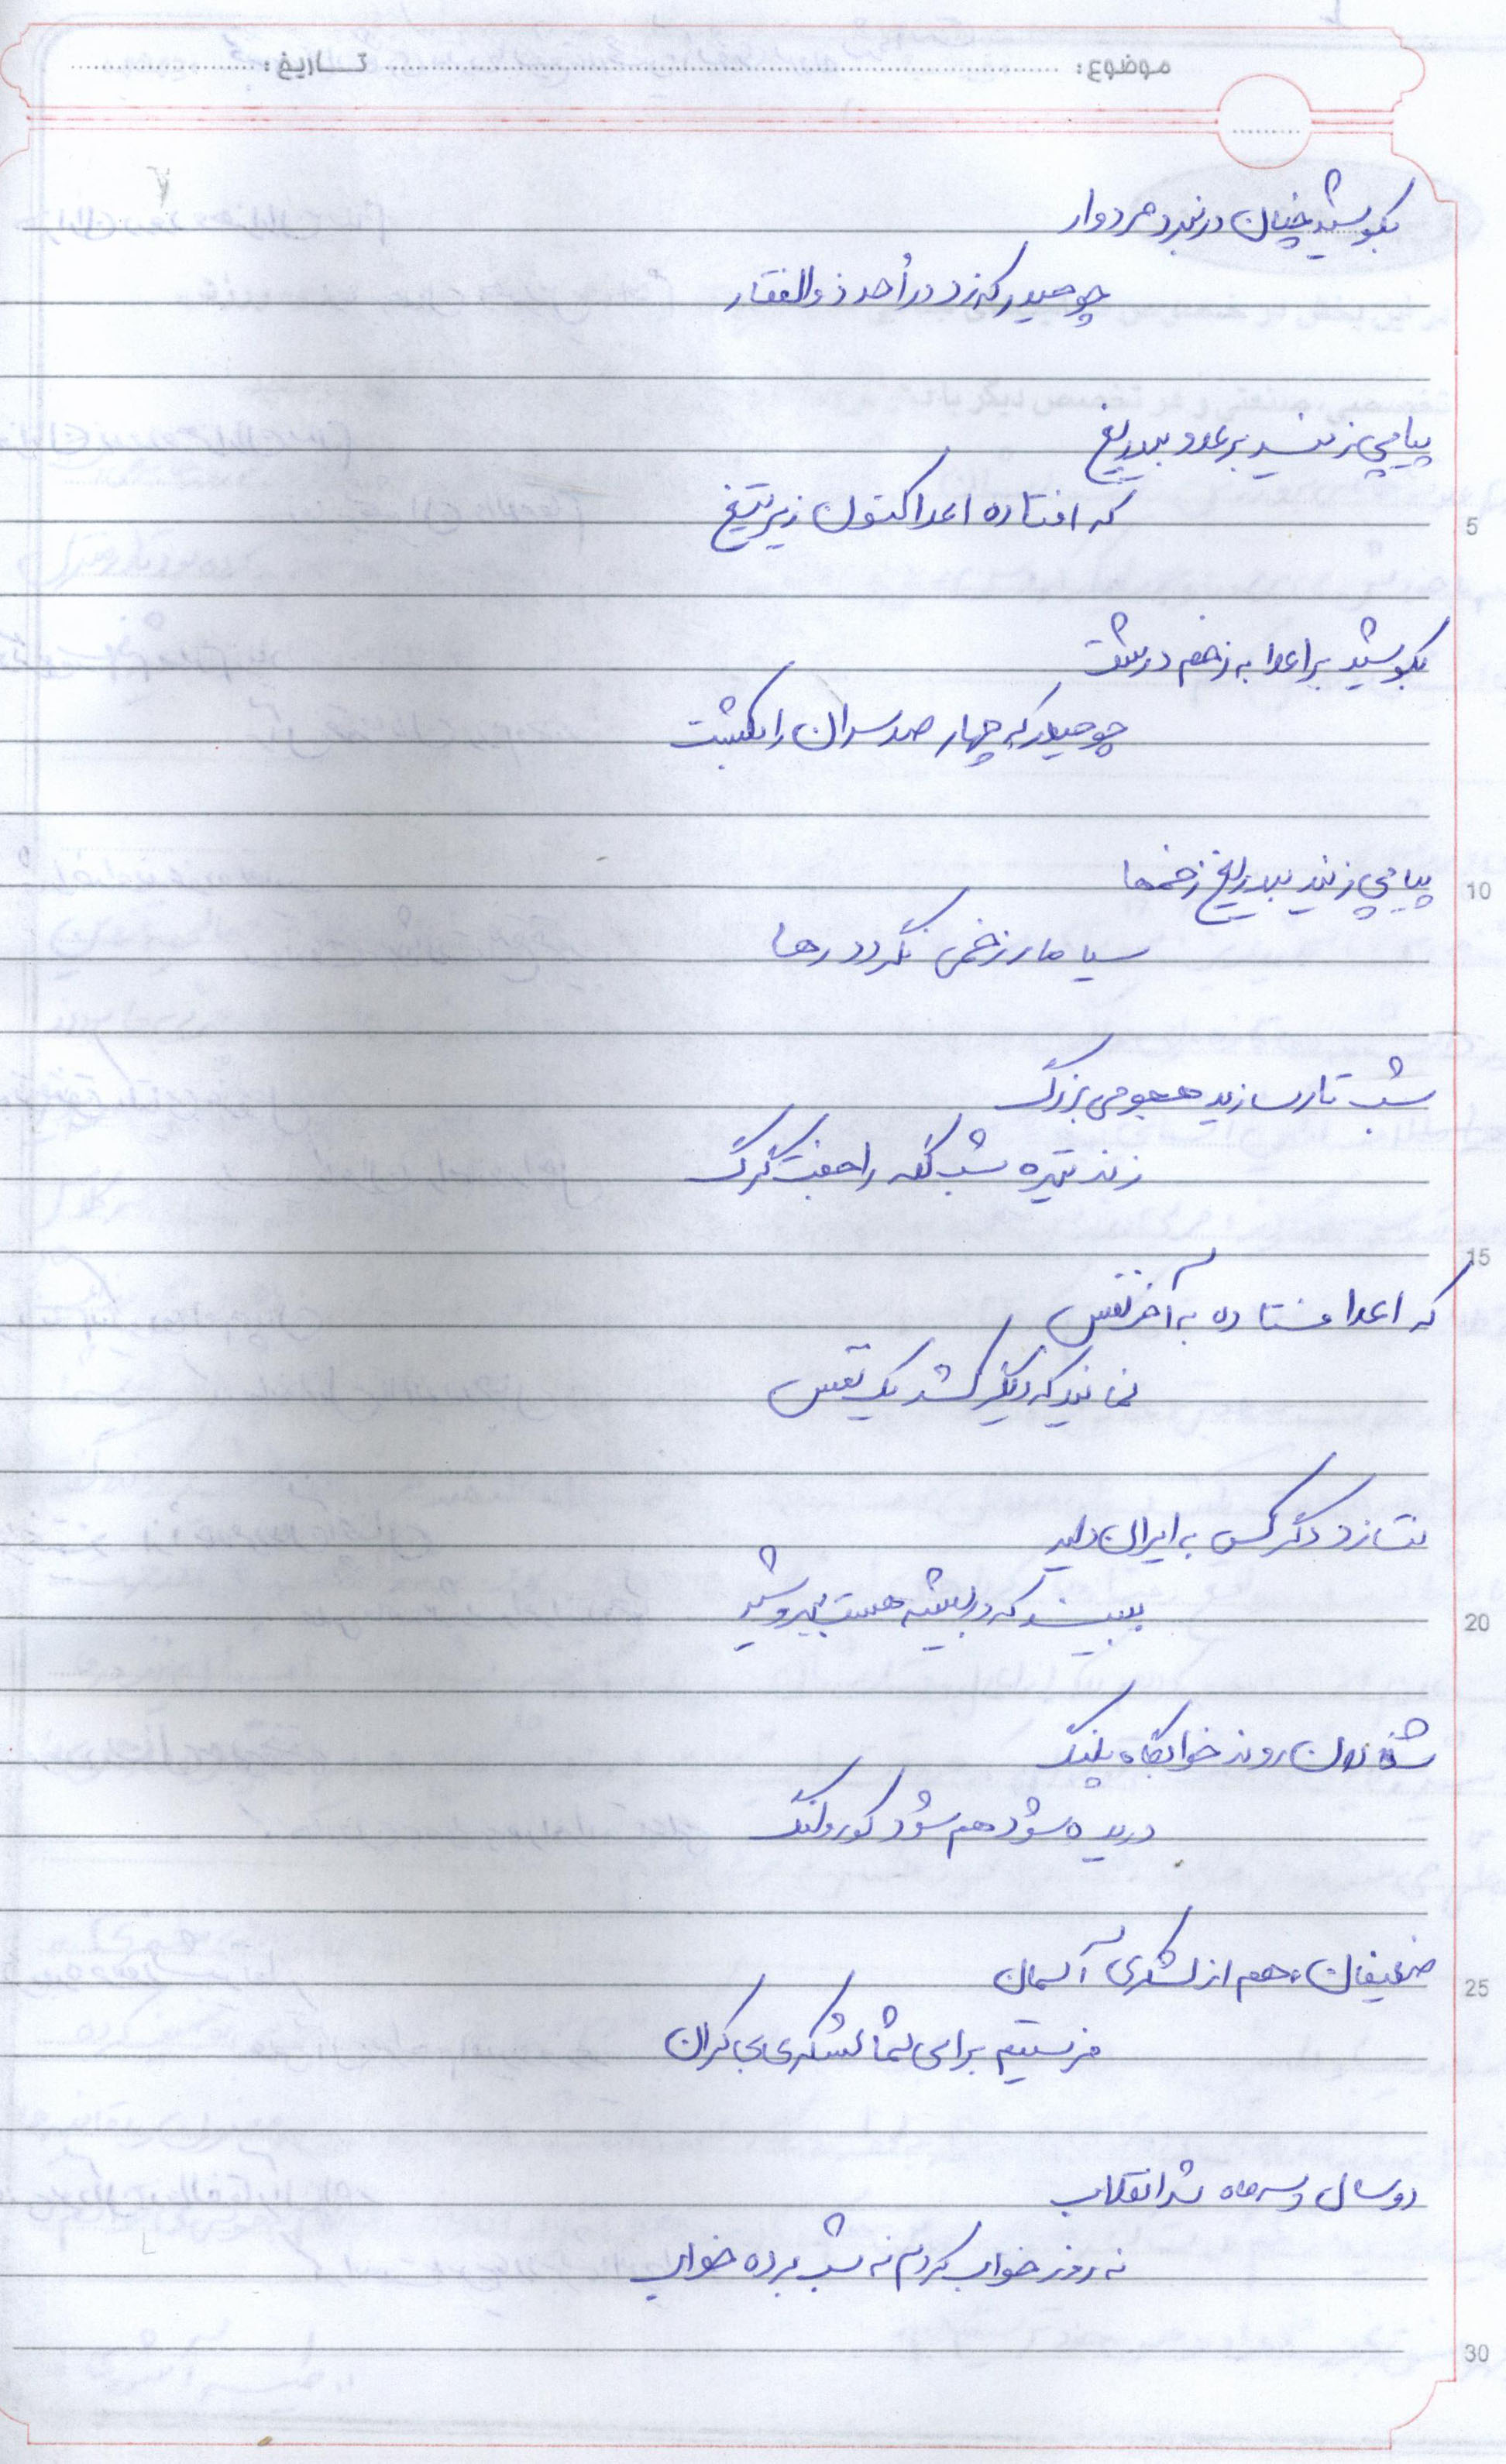 موضوع: تاریخ:
بکوشید چنان در نبرد مردوار
چو حیدر که زد در اُحد ذوالفقار
پیاپی زنید بر عدو بیدریغ
که افتاده اعدا کنون زیر تیغ
بکوشید بر اعدا به زخم درشت
چو حیدر که چهار صد سران را بکشت
پیاپی زنید بیدریغ زخمها
سیا مار زخمی نگردد رها
شب تار سازید هجومی بزرگ
زند تیره شب گله را جفت گرگ
که اعدا فتاده به آخر نفس
نمانید که دیگر کشد یک نفس
نتازد دگر کس به ایران دلیر
ببیند که در بیشه هست ببر و شیر
شغالان روند خوابگاه پلنگ
دریده شود هم شود کور و لنگ
ضعیفان، هم از لشکری آسمان
فرستیم برای شما لشکری بی کران
دو سال و سه ماه شد انقلاب
نه روز خواب کردم نه شب برده خواب
5
10
15
20
25
30